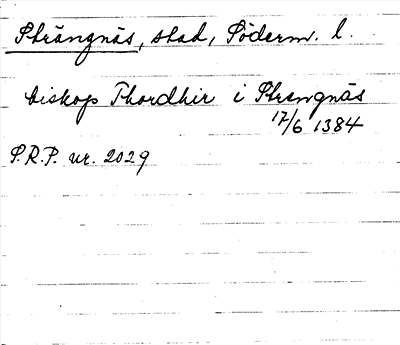 Strängnäs, stad, Söderm. l.
biskop Thordhir i Strengnäs
17/6 1384
S.R.P. nr. 2029